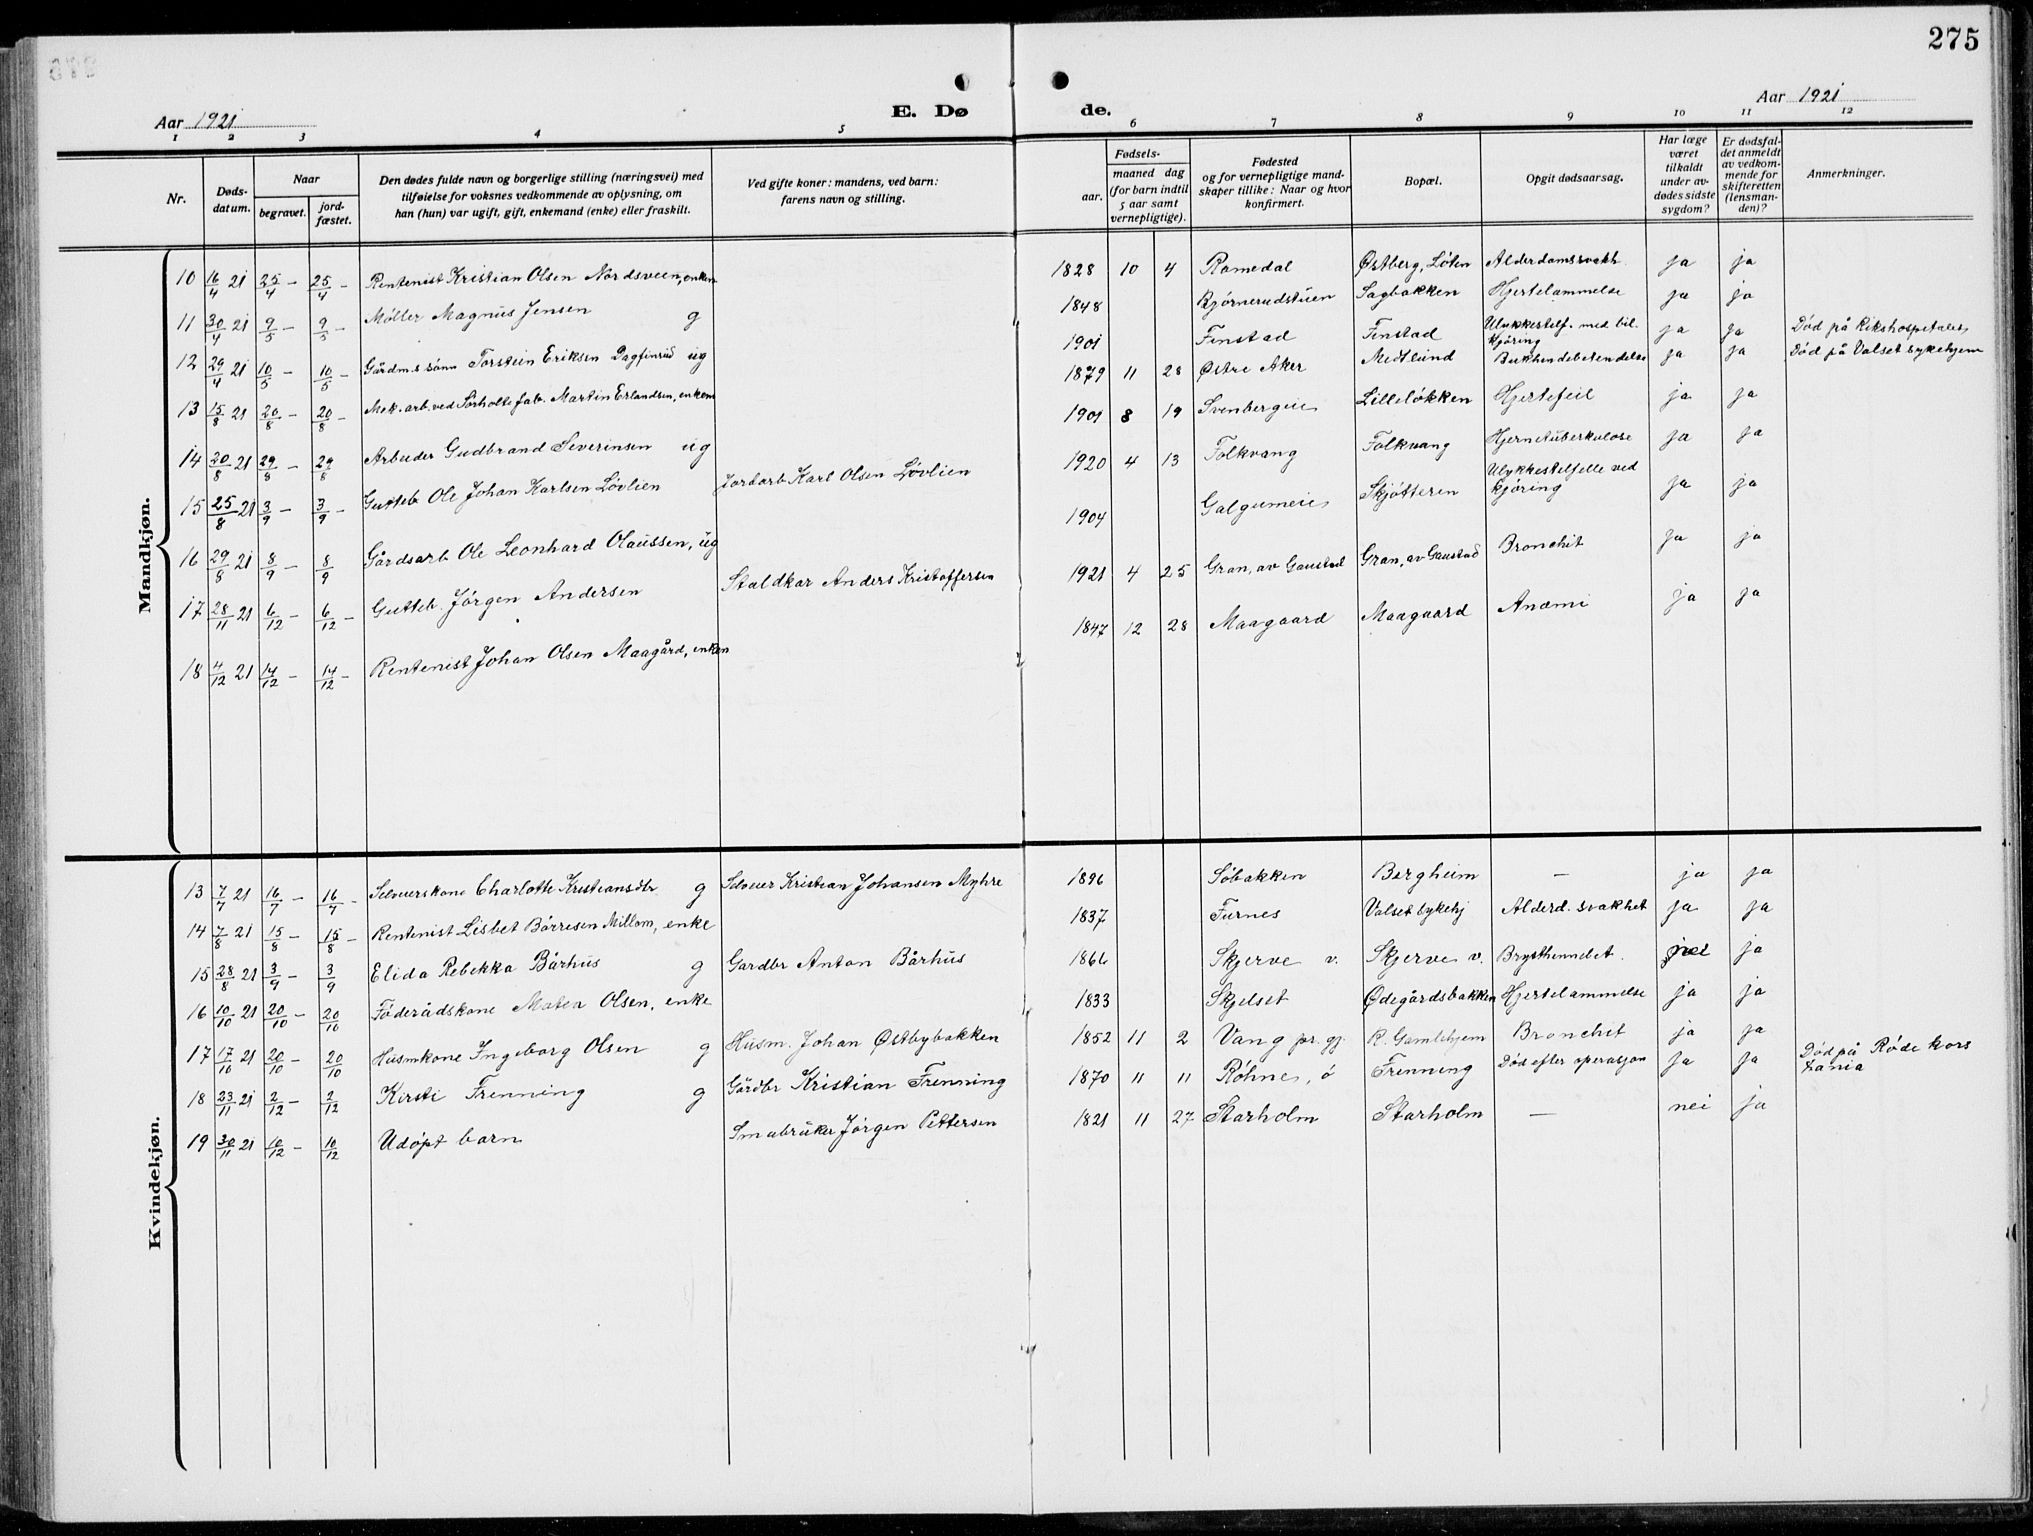 275
Aar 1921
E. Dø
de.
Aar 1921
1 2 3 4 5 6 7 8 9 10 11 12
Nr.
Dødsdatum.
Naar
begravet.
jordfæstet.
Den dødes fulde navn og borgerlige stilling (næringsvei) med
tilføielse for voksnes vedkommende av oplysning, om
han (hun) var ugift, gift, enkemand (enke) eller fraskilt.
Ved gifte koner: mandens, ved barn:
farens navn og stilling.
Fødsels-
aar.
maaned dag
(for barn indtil
5 aar samt
vernepligtige).
Fødested
og for vernepligtige mand-
skaper tillike: Naar og hvor
konfirmert.
Bopæl.
Opgit dødsaarsag.
Har læge
været
tilkaldt
under av-
dødes sidste
sygdom?
Er dødsfal-
det anmeldt
av vedkom-
mende for
skifteretten
(lensman-
den)?
Anmerkninger.
Mandkjøn.
10 16/4 21 25/4 – 25/4 – Rentenist Kristian Olsen Nordsveen, enkem 1828 10 4 Romedal Østberg, Løten Alderdomssvakh. ja ja
11 30/4 21 9/5 – 9/5 – Møller Magnus Jensen g 1848 Bjørnerudstuen Sagbakken Hjertelammelse ja ja
12 29/4 21 10/5 – 10/5 – Gårdm.s sønn Torstein Eriksen Dagfinrud ug 1901 Finstad Finstad Ulykkestilf. med bil. kjøring ja ja Død på Rikshospitalet
13 15/8 21 20/8 – 20/8 – Mek. arb. ved Sørholte fab. Martin Erlandsen, enkem 1879 11 28 Østre Aker Midtlund Bukhindebetendelse ja ja Død på Valset sykehjem
14 20/8 21 29/8 – 29/8 – Arbeider Gudbrand Severinsen ug 1901 8 19 Svenbergeie Lilleløkken Hjertefeil ja ja
15 25/8 21 3/9 – 3/9 – Gutteb Ole Johan Karlsen Løvlien Jordarb Karl Olsen Løvlien 1920 4 13 Folkvang Folkvang Hjernetuberkulose ja ja
16 29/8 21 8/9 – 8/9 Gårdsarb Ole Leonhard Olaussen, ug 1904 Galgumeie Skjøtteren Ulykkestilfelle ved kjøring ja ja
17 28/11 21 6/12 – 6/12 – Gutteb. Jørgen Andersen Staldkar Anders Kristoffersen 1921 4 25 Gran, av Gaustad Gran, av Gaustad Bronchit ja ja
18 4/12 21 14/12 – 14/12 – Rentenist Johan Olsen Maagård, enkem 1847 12 28 Maagaard Maagaard Anæmi ja ja
Kvindekjøn.
13 7/7 21 16/7 – 16/7 – Selveierskone Charlotte Kristiansdtr g Selveier Kristian Johansen Myhre 1896 Søbakken Bergheim – ja ja
14 7/8 21 15/8 – 15/8 – Rentenist Lisbet Børresen Millom, enke 1837 Furnes Valset sykehj Alderd. svakhet ja ja
15 28/8 21 3/9 – 3/9 Elida Rebekka Bårhus g Gardbr Anton Bårhus 1866 Skjerve v. Skjerve v. Brysthinnebet. nei ja
16 10/10 21 20/10 – 20/10 Føderådskone Matea Olsen, enke 1833 Skjelset Ødegårdsbakken Hjertelammelse ja ja
17 17/10 21 20/10 – 20/10 Husmkone Ingeborg Olsen g Husm. Johan Østbybakken 1852 11 2 Vang pr. gj. R. Gamlehjem Bronchit ja ja
18 23/11 21 2/12 – 2/12 Kirsti Frenning g Gårdbr Kristian Frenning 1870 11 11 Røhne, ö Frenning Død efter operasjon ja ja Død på Røde kors
19 30/11 21 10/12 – 10/12 Udøpt barn Småbruker Jørgen Pettersen 1821 11 27 Starholm Starholm – nei ja